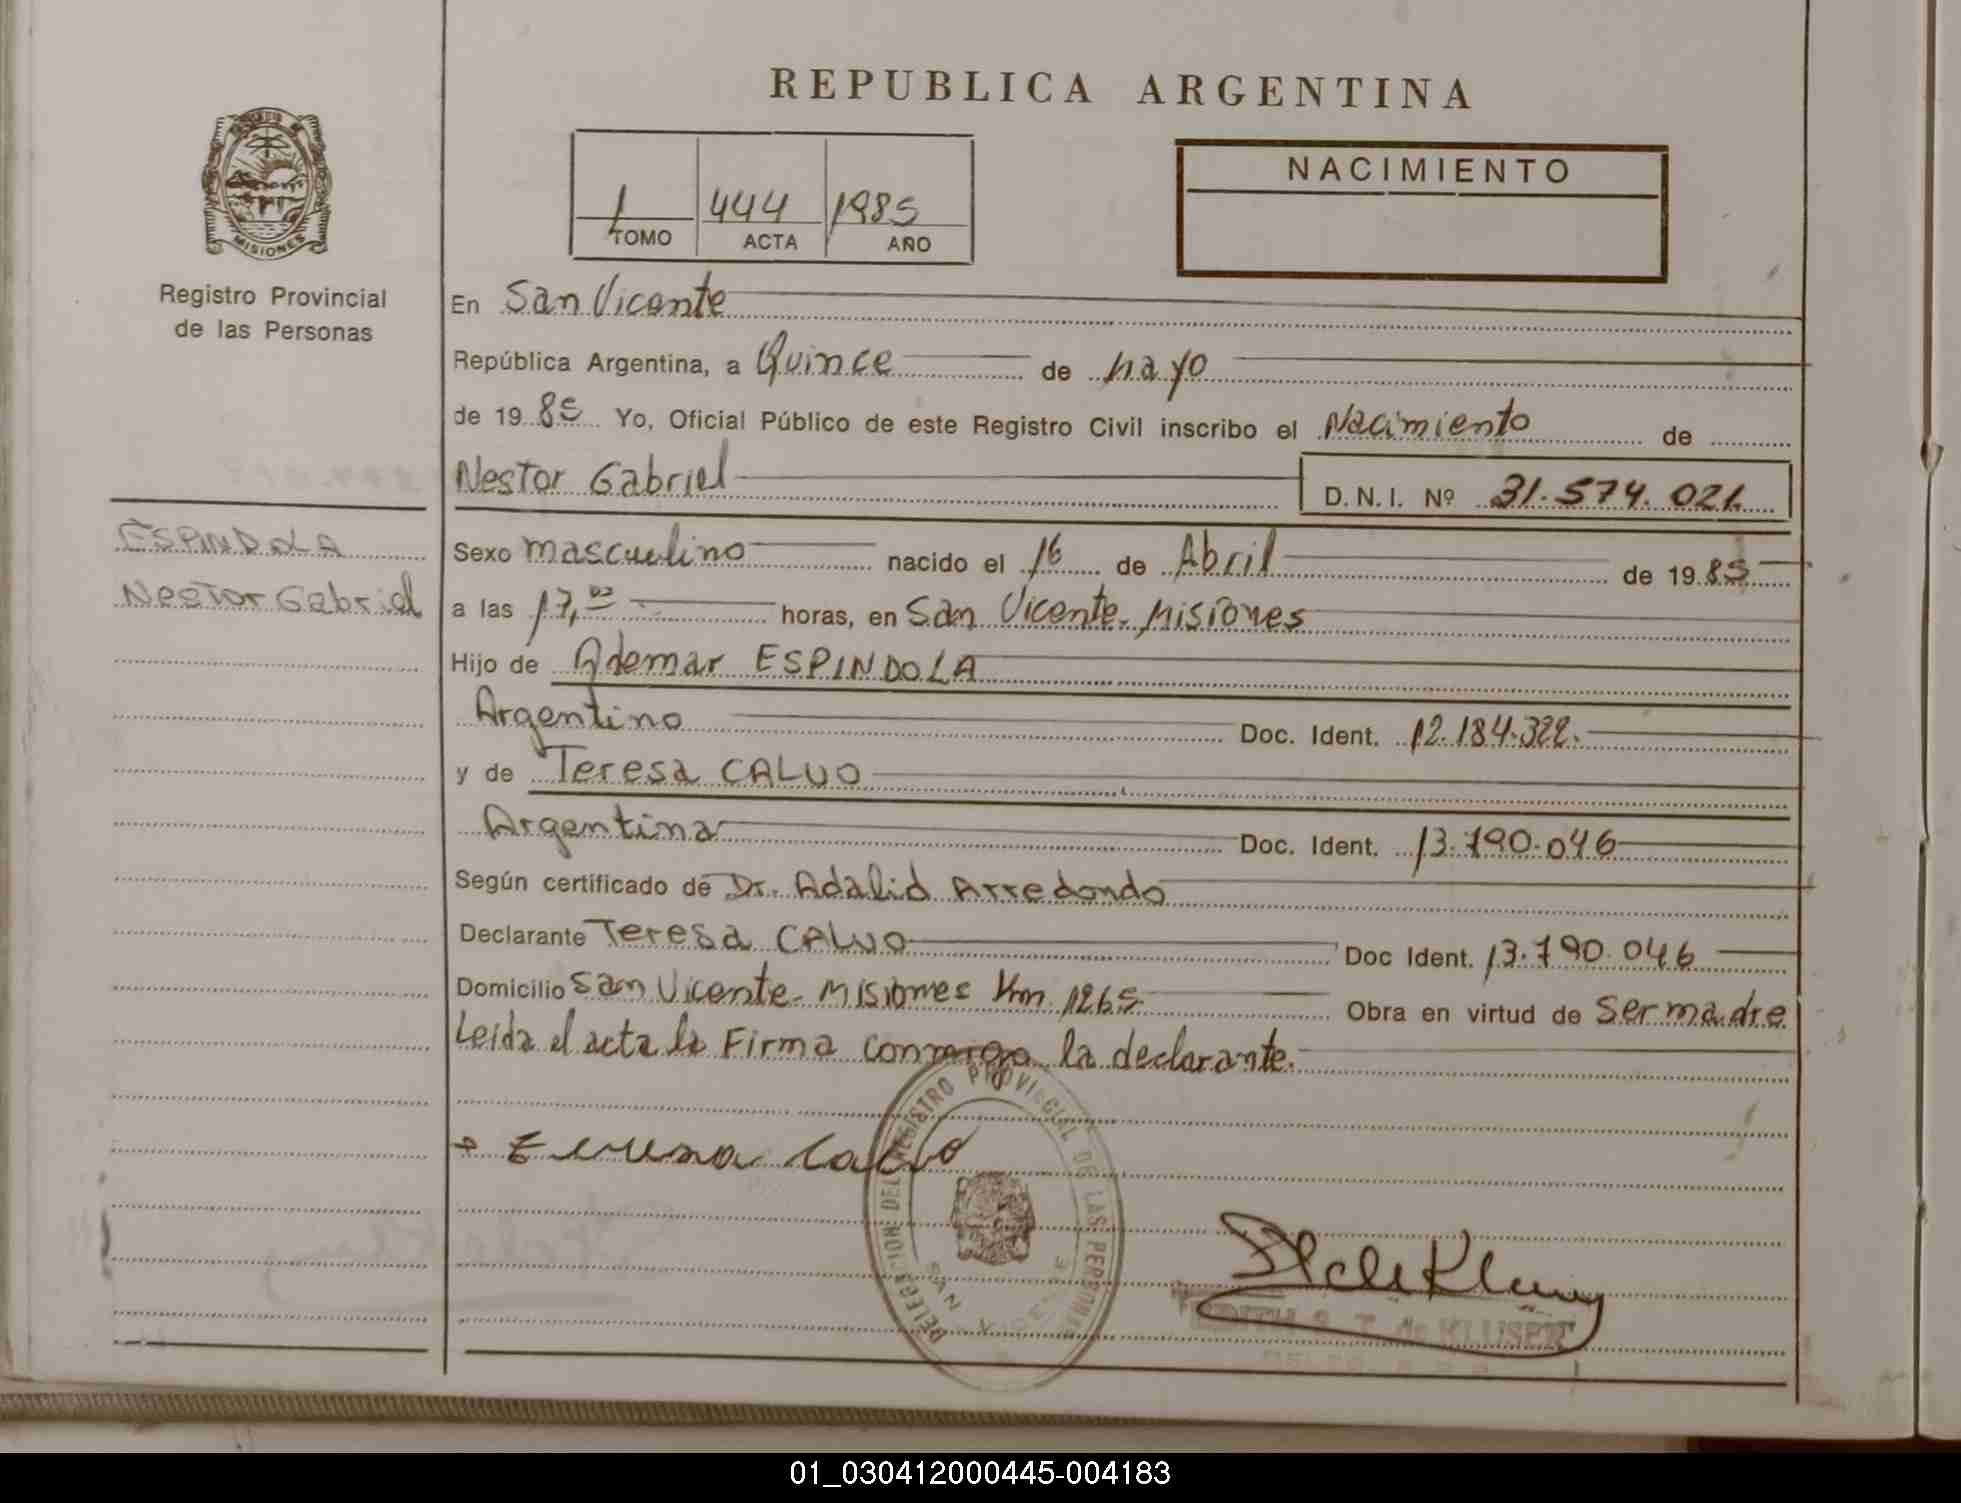 REPUBLICA ARGENTINA
MISIONES
Registro Provincial
de las Personas
1 444 1985
TOMO ACTA AÑO
NACIMIENTO
En San Vicente
República Argentina, a Quince de Mayo
de 1985 Yo, Oficial Público de este Registro Civil inscribo el Nacimiento de
Nestor Gabriel D.N.I. Nº 31.574.021
ESPINDOLA
Nestor Gabriel
Sexo masculino nacido el 16 de Abril de 1985
a las 17,00 horas, en San Vicente- Misiones
Hijo de Ademar ESPINDOLA
Argentino Doc. Ident. 12.184.322.
y de Teresa CALVO
Argentina Doc. Ident. 13.790.046
Según certificado de Dr. Adalid Arredondo
Declarante Teresa CALVO Doc Ident. 13.790.046
Domicilio San Vicente- Misiones Km 1265 Obra en virtud de Ser madre
Leida el acta la Firma conmigo la declarante.
DELEGACION DEL REGISTRO PROVINCIAL DE LAS PERSONAS
SAN VICENTE
Teresa Calvo
EDITH S. T. de KLUSER
01_030412000445-004183